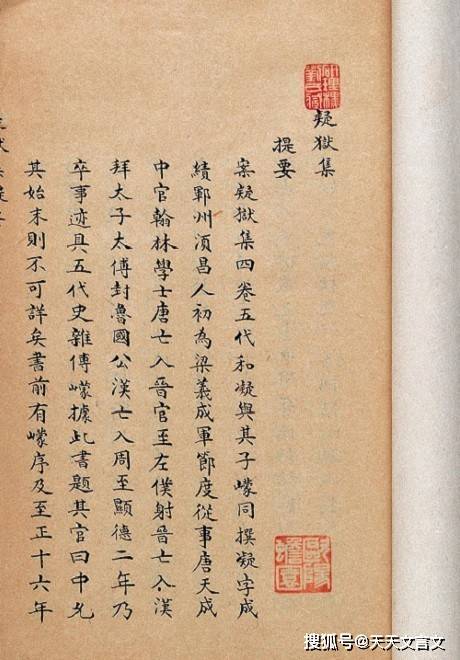 研理樓劉氏藏
疑獄集
提要
案疑獄集四卷五代和凝與其子㠓同撰凝字成
績鄆州湏昌人初為梁義成軍節度從事唐天成
中官翰林學士唐亡入晉官至左僕射晉亡入漢
拜太子太傅封魯國公漢亡入周至顯德二年乃
卒事迹具五代史雜傳㠓據此書題其官曰中允
其始末則不可詳矣書前有㠓序及至正十六年
歐陽蟾園
搜狐号@天天文言文